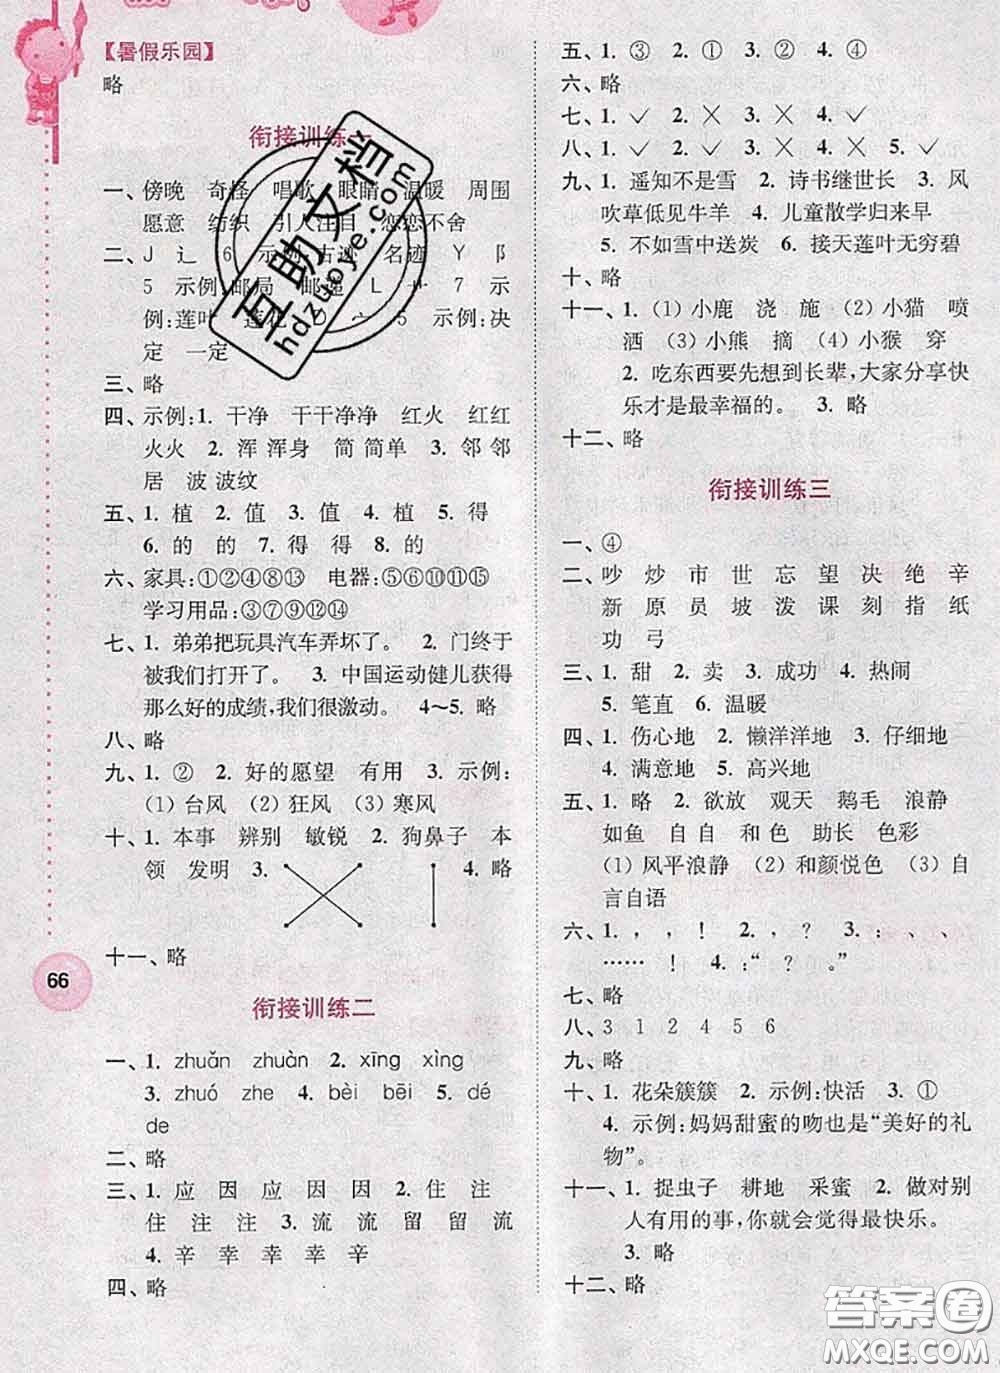 【暑假乐园】
略
衔接训练一
一、傍晚 奇怪 唱歌 眼睛 温暖 周围
愿意 纺织 引人注目 恋恋不舍
二、J 辶 6 示例:古迹 名迹 Y 阝
5 示例:邮局 邮递 L 艹 7 示
例:莲叶 莲花 5 示例:决
定 一定
三、略
四、示例:1. 干净 干干净净 红火 红红
火火 2. 浑 浑身 简 简单 3. 邻 邻
居 波 波纹
五、1. 植 2. 值 3. 值 4. 植 5. 得
6. 的 的 7. 得 得 8. 的
六、家具:①②④⑧⑬ 电器:⑤⑥⑩⑪⑮
学习用品:③⑦⑨⑫⑭
七、1. 弟弟把玩具汽车弄坏了。 2. 门终于
被我们打开了。 3. 中国运动健儿获得
那么好的成绩,我们很激动。 4～5. 略
八、略
九、1. ② 2. 好的愿望 有用 3. 示例:
(1) 台风 (2) 狂风 (3) 寒风
十、1. 本事 辨别 敏锐 2. 狗鼻子 本
领 发明 3. 4. 略
十一、略
66
衔接训练二
一、1. zhuǎn zhuàn 2. xīng xìng
3. zhuó zhe 4. bèi bēi 5. dé dé
de
二、略
三、1. 应 因 应 因 因 2. 住 注
住 注 注 3. 流 流 留 留 流
4. 辛 幸 幸 幸 辛
四、略
五、1. ③ 2. ① 3. ② 4. ④
六、略
七、1. ✓ 2. ✕ 3. ✕ 4. ✓
八、1. ✓ 2. ✓ 3. ✕ 4. ✕ 5. ✓
九、1. 遥知不是雪 2. 诗书继世长 3. 风
吹草低见牛羊 4. 儿童散学归来早
5. 不如雪中送炭 6. 接天莲叶无穷碧
十、略
十一、1. (1) 小鹿 浇 施 (2) 小猫 喷
洒 (3) 小熊 摘 (4) 小猴 穿
2. 吃东西要先想到长辈,大家分享快
乐才是最幸福的。 3. 略
十二、略
衔接训练三
一、④
二、吵 炒 市 世 忘 望 决 绝 辛
新 原 员 坡 泼 课 刻 指 纸
功 弓
三、1. 甜 2. 卖 3. 成功 4. 热闹
5. 笔直 6. 温暖
四、1. 伤心地 2. 懒洋洋地 3. 仔细地
4. 满意地 5. 高兴地
五、1. 略 2. 欲放 观天 鹅毛 浪静
如鱼 自 自 和 色 助长 色彩
(1) 风平浪静 (2) 和颜悦色 (3) 自
言自语
六、1. , , ! 2. , ? 3. : 、 、
…… ! 4. :“ ? ” 。
七、略
八、3 1 2 4 5 6
九、略
十、1. 花朵簇簇 2. 示例:快活 3. ①
4. 示例:妈妈甜蜜的吻也是“美好的礼
物”。
十一、1. 捉虫子 耕地 采蜜 2. 做对别
人有用的事,你就会觉得最快乐。
3. 略
十二、略
互助文档
hdzuoye.com
答案圈
MXQE.COM